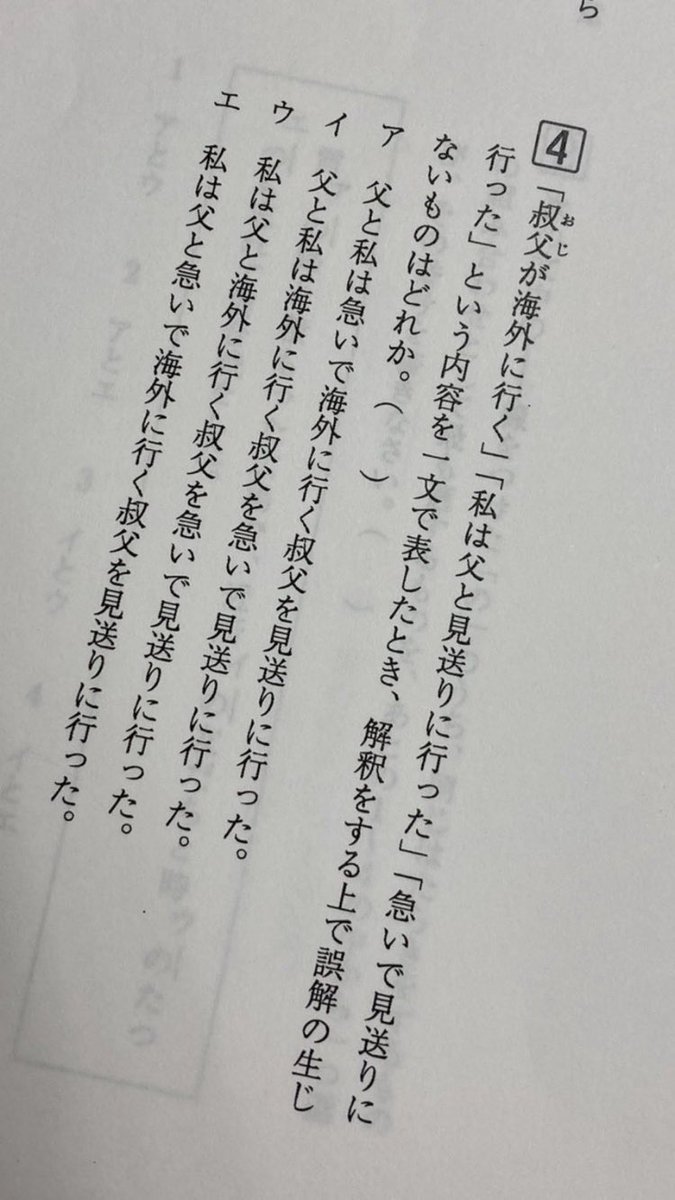 ら
4 「叔父が海外に行く」「私は父と見送りに行った」「急いで見送りに
おじ
行った」という内容を一文で表したとき、解釈をする上で誤解の生じ
ないものはどれか。( )
ア 父と私は急いで海外に行く叔父を見送りに行った。
イ 父と私は海外に行く叔父を急いで見送りに行った。
ウ 私は父と海外に行く叔父を急いで見送りに行った。
エ 私は父と急いで海外に行く叔父を見送りに行った。